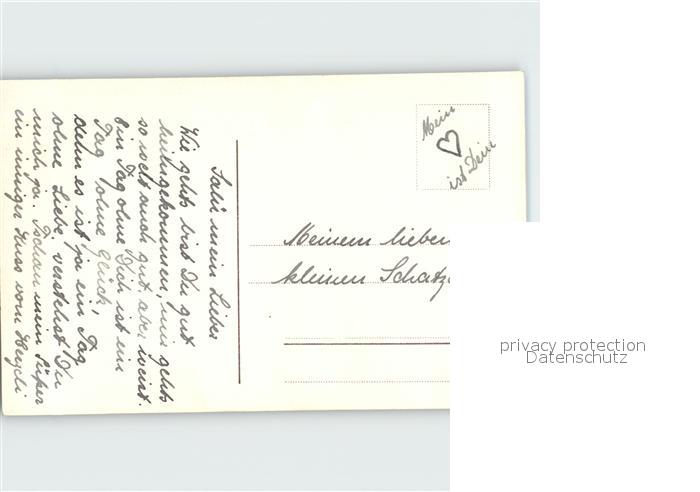 Salü mein Lieber
Wie gehts bist Du gut
heimgekommen, mir gehts
so weit auch gut, aber weist.
Ein Tag ohne Dich ist ein
Tag ohne Glück,
denn es ist ja ein Tag
ohne Liebe, verstehst Du
mich ja. Tschau mein Süßer
ein inniger Kuss vom
Mein
♡
ist Dein
Meinem lieben
kleinen Schatz
privacy protection
Datenschutz